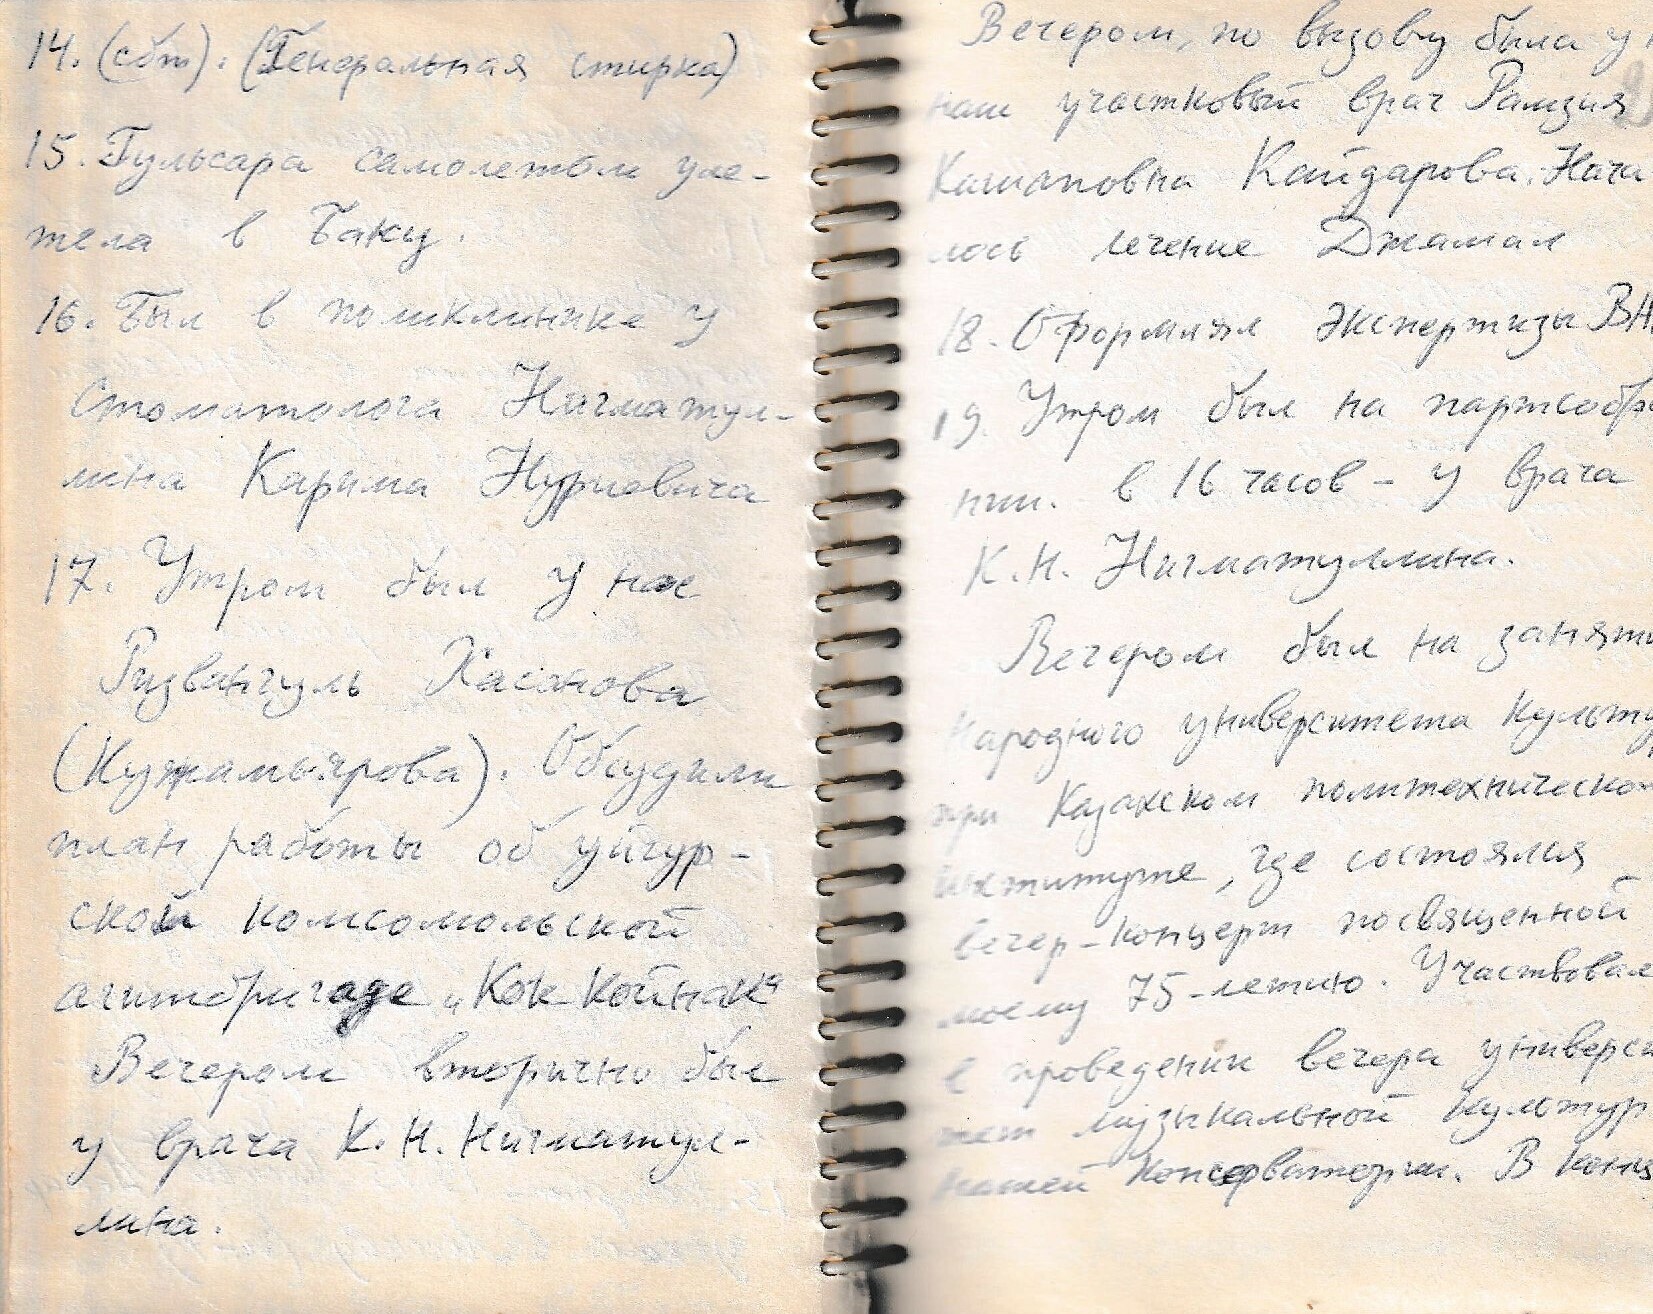 14. (сбт). (Генеральная стирка)
15. Гульсара самолетом уле-
тела в Баку.
16. Был в поликлинике у
стоматолога Нигматул-
лина Карима Нуриевича
17. Утром был у нас
Ризвангуль Хасанова
(Кужамьярова). Обсудили
план работы об уйгур-
ской комсомольской
агитбригаде „Кок Койнак“
Вечером вторично был
у врача К.Н. Нигматул-
лина.
Вечером, по вызову была у
наш участковый врач Рамзия
Кашаповна Кайдарова. Нача
лось лечение Джамал
18. Оформлял экспертизы ВН
19. Утром был на партсобра
нии. в 16 часов – у врача
К.Н. Нигматуллина.
Вечером был на заняти
Народного университета культу
при Казахском политехническом
институте, где состоялся
вечер-концерт посвященной
моему 75-летию. Участвовал
в проведении вечера универси
тет музыкальной культур
нашей консерватории. В конц